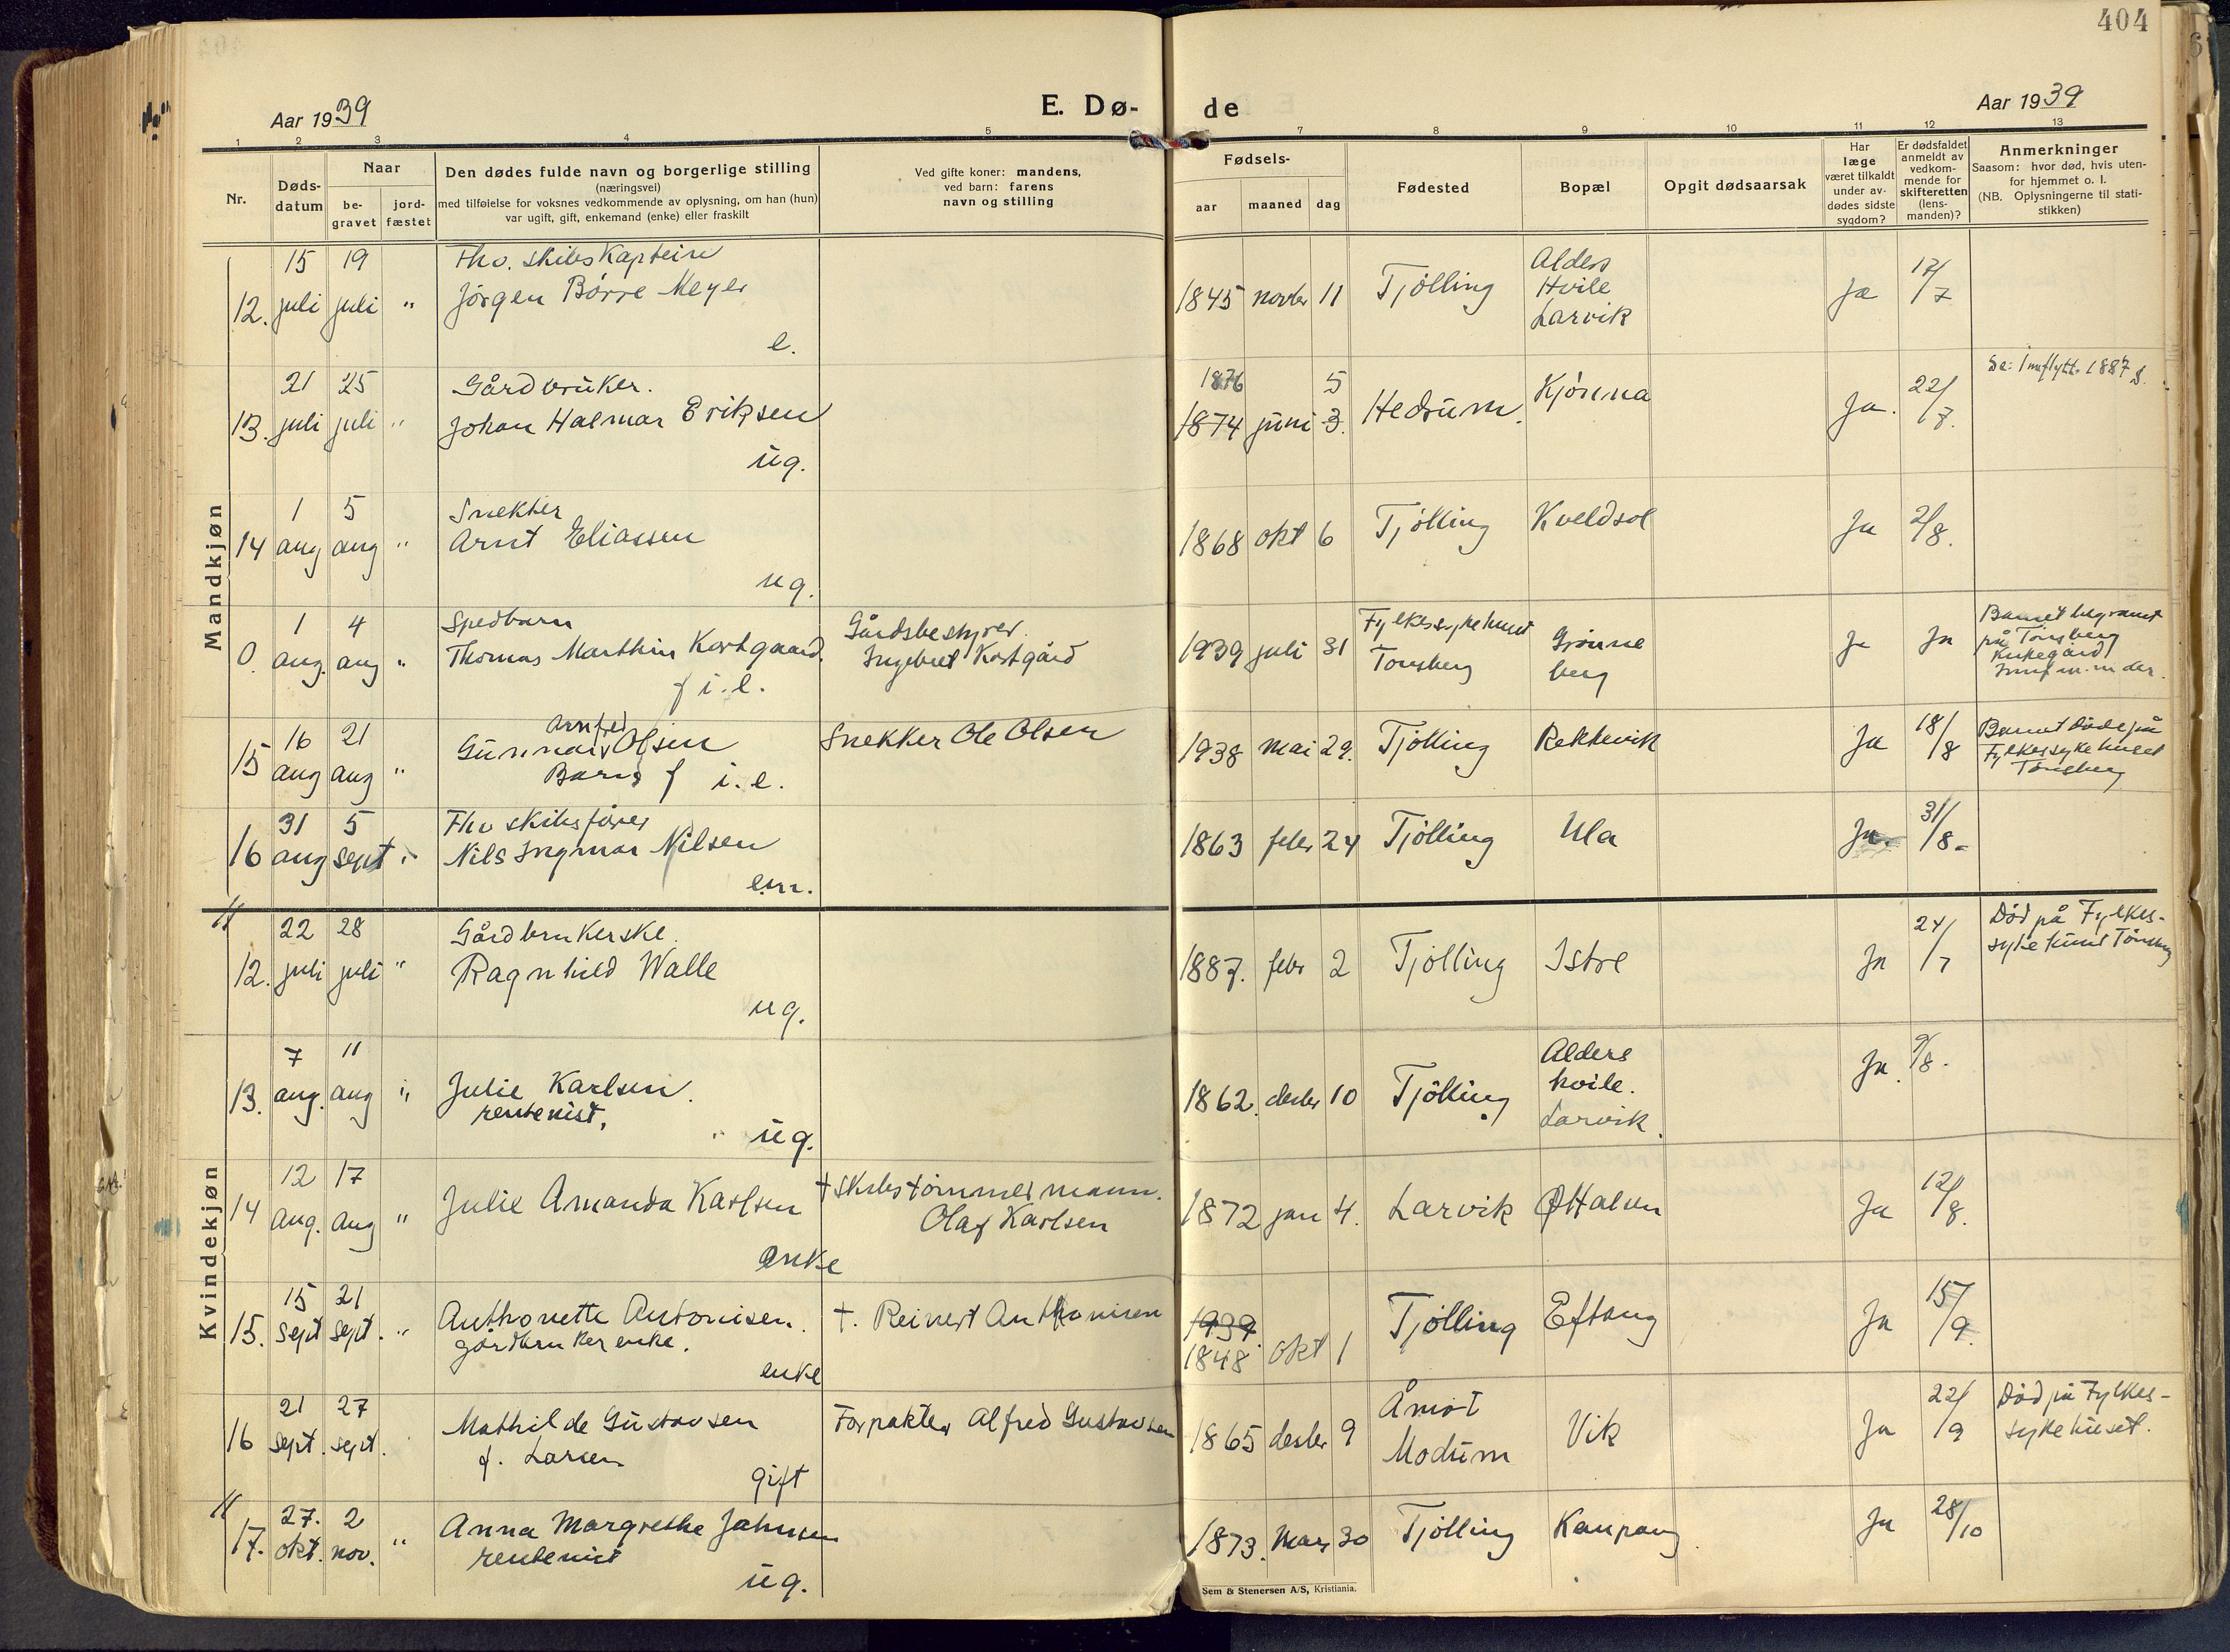 404
Aar 1939
E. Dø-
de
Aar 1939
1 2 3 4 5 7 8 9 10 11 12 13
Nr.
Døds-
datum
Naar
be-
gravet
jord-
fæstet
Den dødes fulde navn og borgerlige stilling
(næringsvei)
med tilføielse for voksnes vedkommende av oplysning, om han (hun)
var ugift, gift, enkemand (enke) eller fraskilt
Ved gifte koner: mandens,
ved barn: farens
navn og stilling
Fødsels-
aar maaned dag
Fødested
Bopæl
Opgit dødsaarsak
Har
læge
været tilkaldt
under av-
dødes sidste
sygdom?
Er dødsfaldet
anmeldt av
vedkom-
mende for
skifteretten
(lens-
manden)?
Anmerkninger
Saasom: hvor død, hvis uten-
for hjemmet o. l.
(NB. Oplysningerne til stati-
stikken)
Mandkjøn
12. 15 juli 19 juli "
Fhv. skibskaptein
Jörgen Börre Meyer
e.
1845 novbr 11 Tjölling
Alders
Hvile
Larvik
Ja 17/7
13. 21 juli 25 juli "
Gårdbruker.
Johan Halmar Eriksen
ug.
1876 5
1874 juni 3. Hedrum. Kjönna
Ja. 22/7.
Se: Innflytt. 1887
14 1 aug 5 aug "
Snekker
Arnt Eliassen
ug.
1868 okt 6 Tjölling Kveldsol
Ja 2/8.
0. 1 aug. 4 aug "
Spedbarn
Thomas Marthin Kortgaard.
f i. e.
Gårdsbestyrer.
Ingebret Kortgård
1939 juli 31
Fylkessykehuset
Tönsberg
Grönne
berg
Ja Ja
Barnet begravet
på Tönsberg
kirkegård
15 16 aug 21 aug "
Arnfred
Gunnar Olsen
Barn f i. e.
Snekker Ole Olsen
1938 mai 29. Tjölling Rekkevik
Ja 18/8
Barnet döde på
Fylkessykehuset
Tönsberg
16 31 aug 5 sept "
Fhv skibsförer
Nils Ingmar Nilsen
em.
1863 febr 24 Tjölling Ula
Ja. 31/8.
Kvindekjøn
12. 22 juli 28 juli "
Gårdbrukerske.
Ragnhild Walle
ug.
1887. febr 2 Tjölling Istre
Ja 24/7
Död på Fylkes-
sykehuset Tönsberg
13. 7 aug. 11 aug "
Julie Karlsen.
rentenist.
ug.
1862. desbr 10 Tjölling
Alders
hvile.
Larvik.
Ja. 9/8.
14 12 aug. 17 aug "
Julie Amanda Karlsen
enke
† Skibstömmermann.
Olaf Karlsen
1872 jan 4. Larvik Östhalsen
Ja 12/8.
15. 15 sept 21 sept. "
Anthonette Antonisen.
gårdbrukerenke.
enke
†. Reinert Anthonisen
1939.
1848 okt 1 Tjölling Eftang
Ja 15/9.
16 21 sept. 27 sept.
Mathilde Gustavsen
f. Larsen
gift
Forpakter Alfred Gustavsen
1865 desbr 9
Åmot
Modum
Vik
Ja 22/9
Död på Fylkes-
sykehuset.
17. 27. okt. 2 nov. "
Anna Margrethe Johnsen
rentenist
ug.
1873. Mars 30 Tjölling Kaupang.
Ja 28/10
Sem & Stenersen A/S, Kristiania.